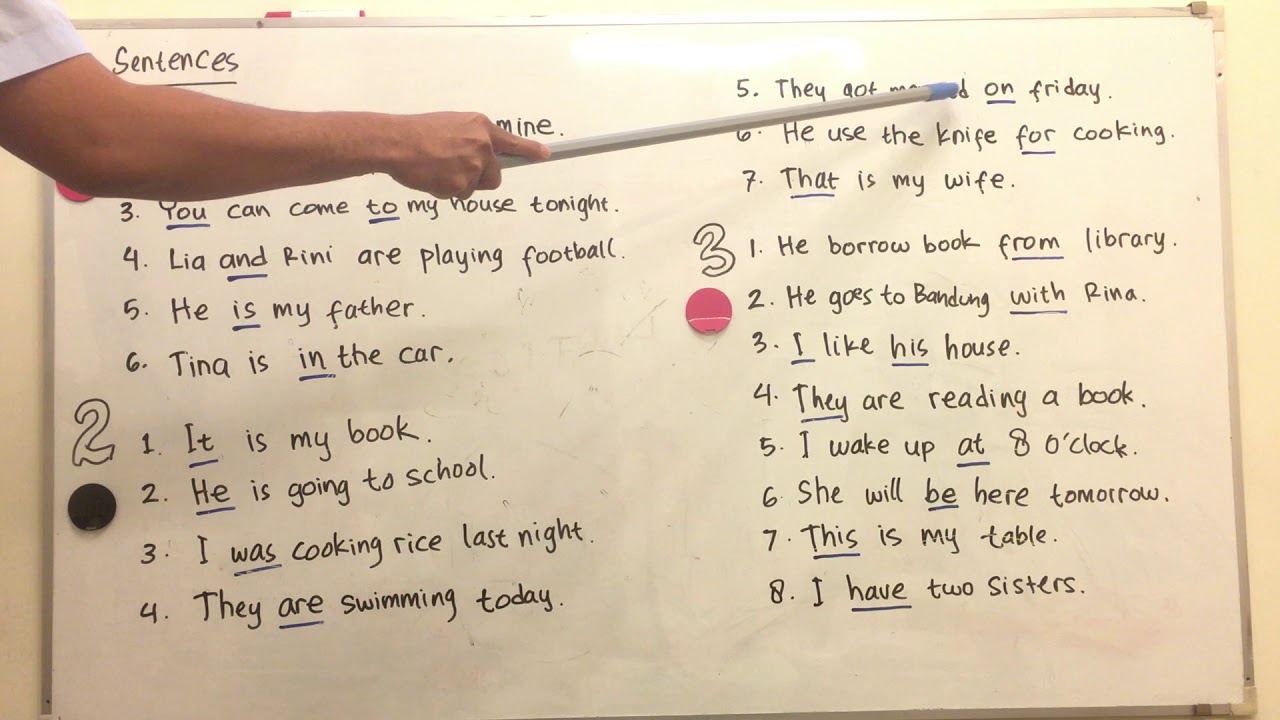 Sentences
mine.
3. You can come to my house tonight.
4. Lia and Rini are playing football.
5. He is my father.
6. Tina is in the car.
2
1. It is my book.
2. He is going to school.
3. I was cooking rice last night.
4. They are swimming today.
5. They got on friday.
6. He use the knife for cooking.
7. That is my wife.
3
1. He borrow book from library.
2. He goes to Bandung with Rina.
3. I like his house.
4. They are reading a book.
5. I wake up at 8 O'clock.
6 She will be here tomorrow.
7. This is my table.
8. I have two sisters.